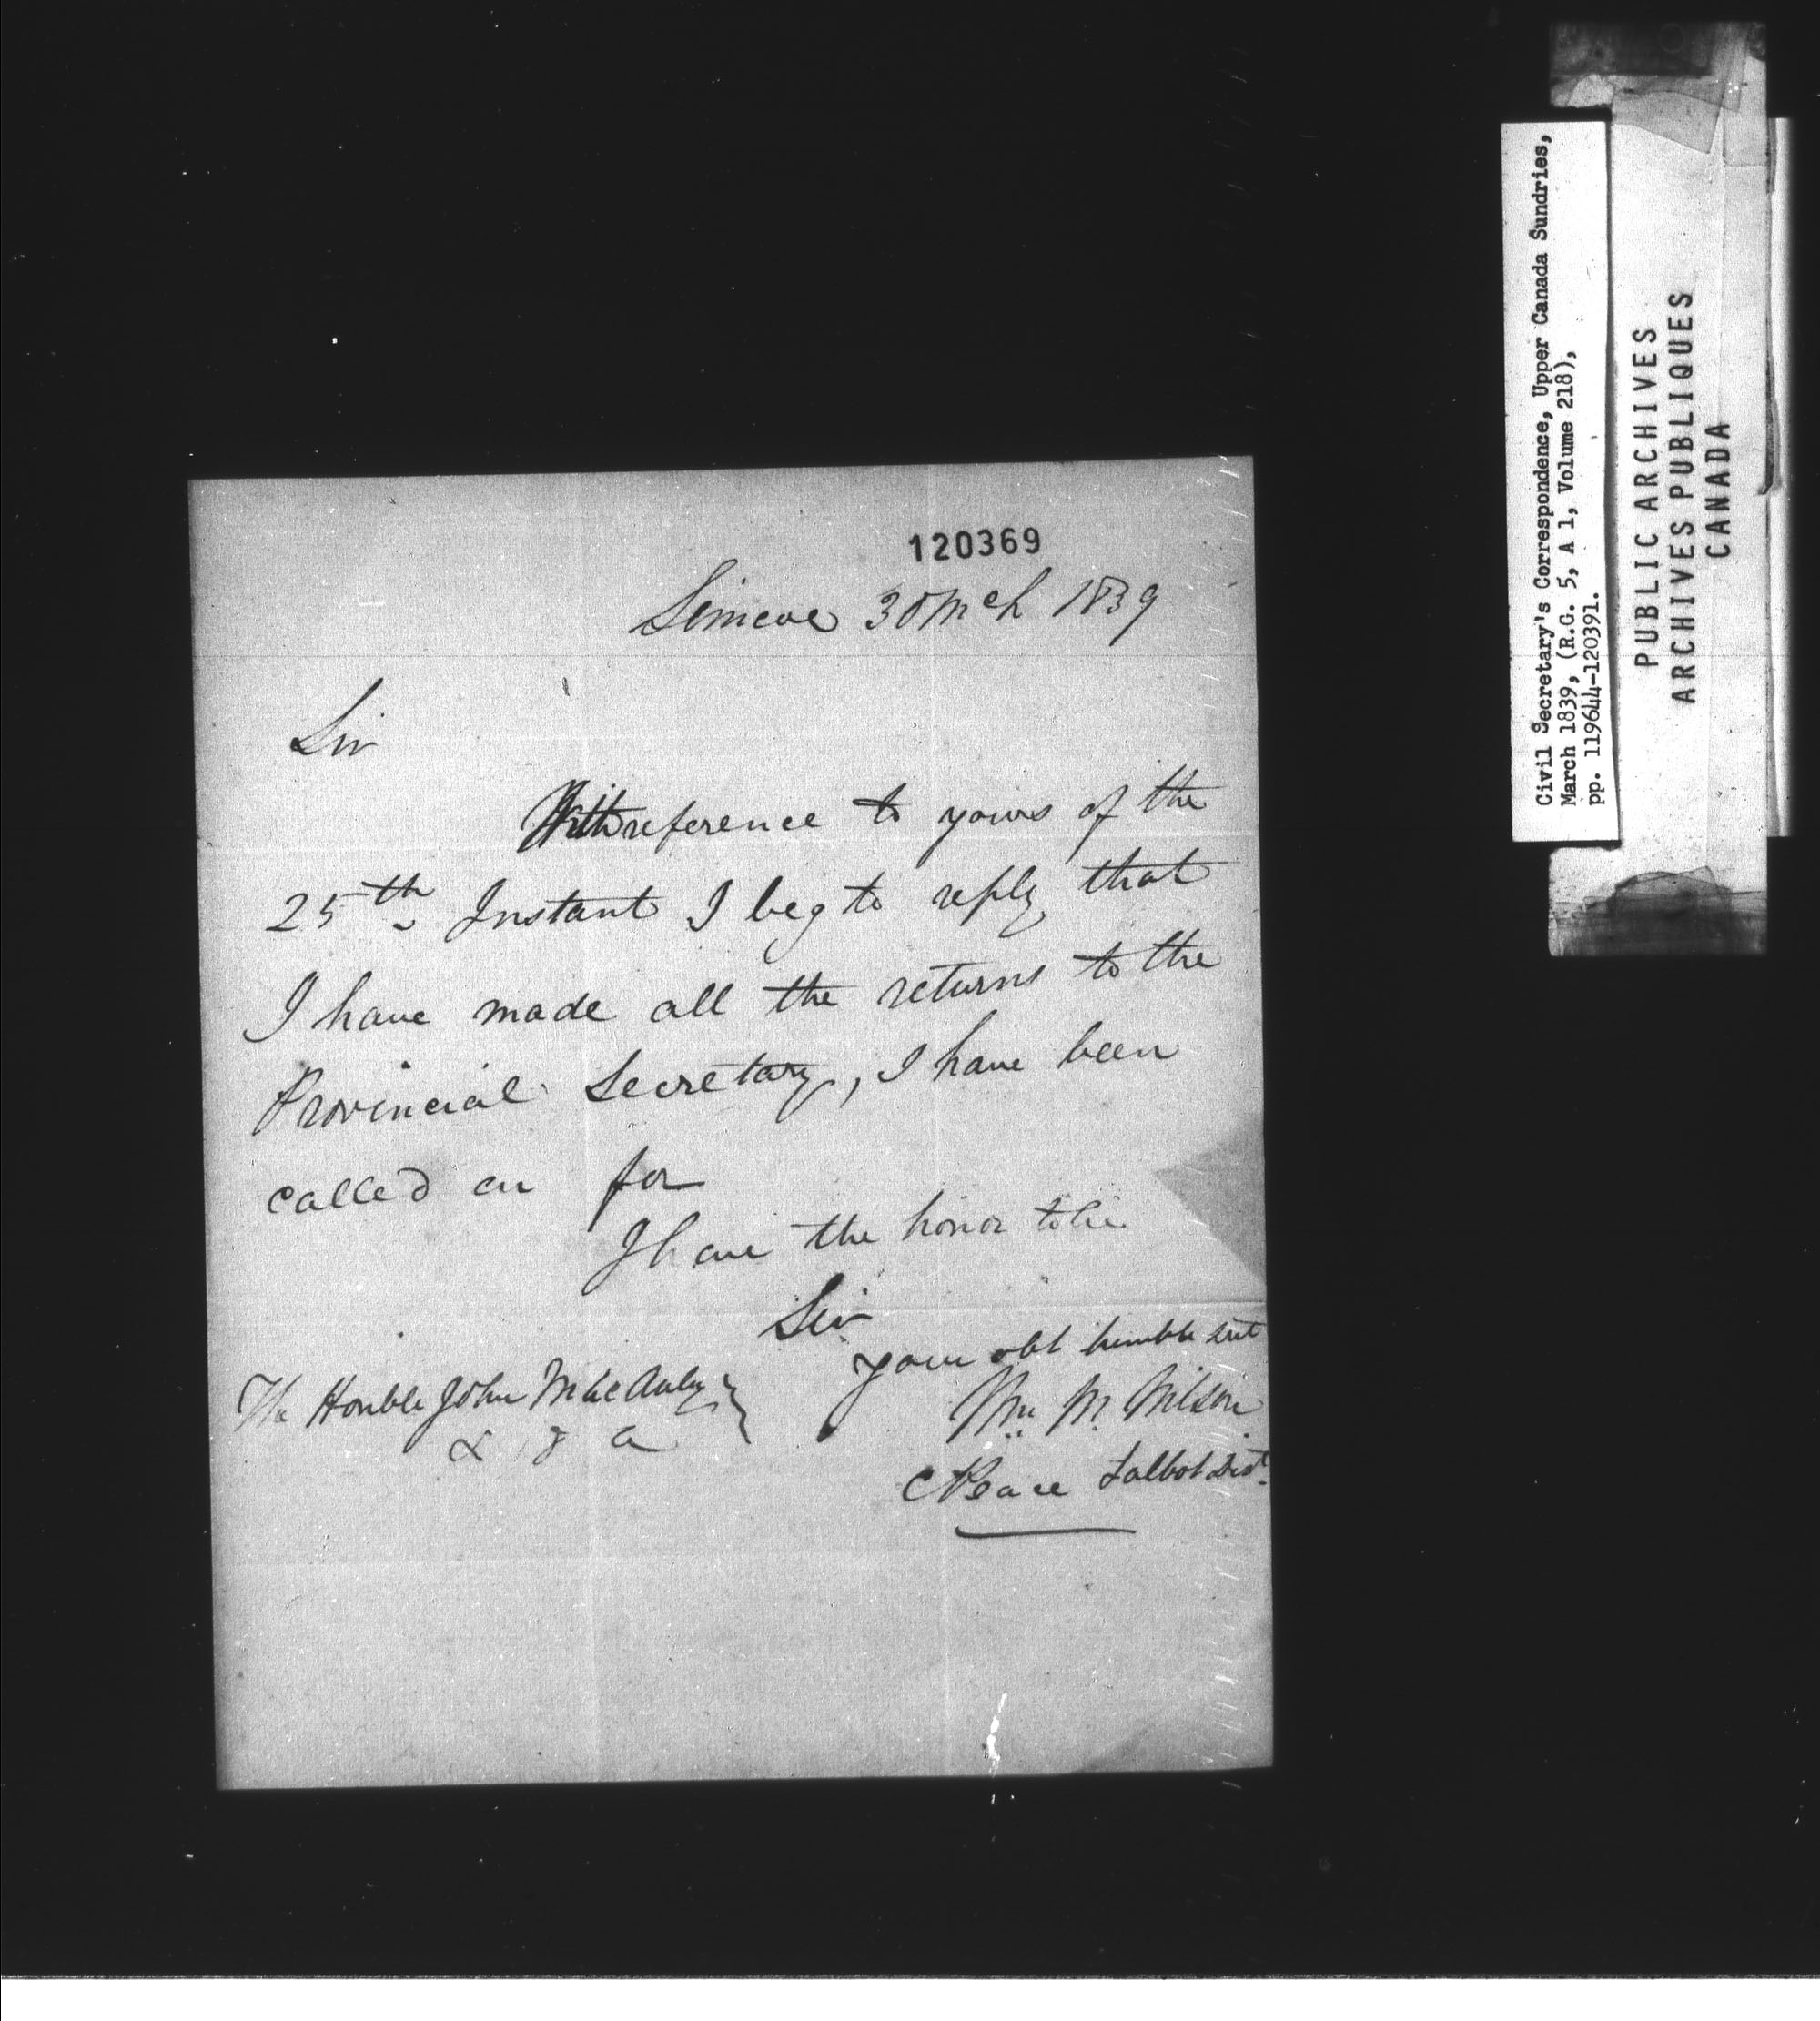 120369
Simcoe 30 Mch 1839
Sir
With reference to yours of the
25th Instant I beg to reply that
I have made all the returns to the
Provincial Secretary, I have been
called on for
I have the honor to be
Sir
your obt humble svt
Wm M. Wilson
C Peace Talbot Dist.
The Honble John MacAulay
& &
Civil Secretary's Correspondence, Upper Canada Sundries,
March 1839, (R.G. 5, A 1, Volume 218),
pp. 119644-120391.
PUBLIC ARCHIVES
ARCHIVES PUBLIQUES
CANADA